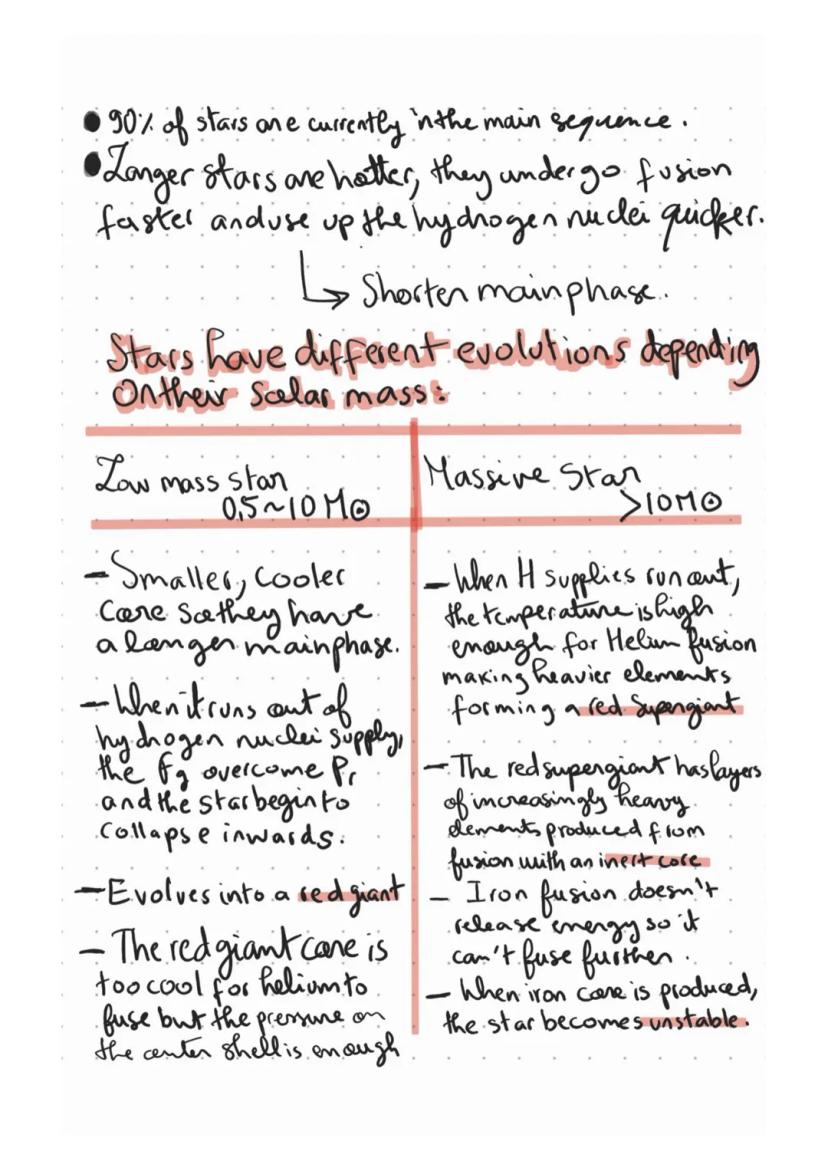 90% of stars are currently in the main sequence.
Larger stars are hotter, they undergo fusion
faster and use up the hydrogen nuclei quicker.
Shorter main phase.
Stars have different evolutions depending
On their Solar mass:
Low mass star
0,5~10 M⊙
- Smaller, cooler
core so they have
a longer main phase.
- When it runs out of
hydrogen nuclei supply,
the Fg overcome Pr
and the star begin to
collapse inwards.
- Evolves into a red giant
- The red giant core is
too cool for helium to
fuse but the pressure on
the outer shell is enough
Massive Star
>10M⊙
- When H supplies run out,
the temperature is high
enough for Helium fusion
making heavier elements
forming a red Supergiant
- The red supergiant has layers
of increasingly heavy
elements produced from
fusion with an inert core
- Iron fusion doesn't
release energy so it
can't fuse further.
- When iron core is produced,
the star becomes unstable.